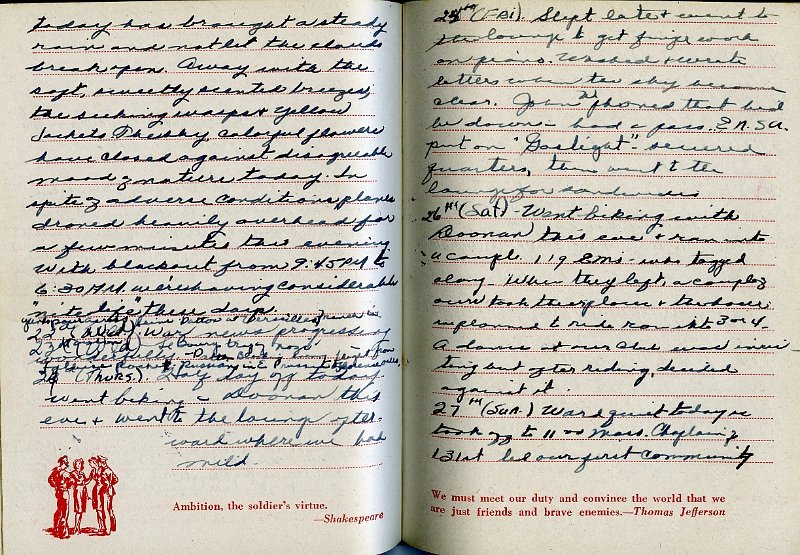 today has brought a steady
rain and not let the clouds
break open. Away with the
soft, sweetly scented breezes,
the seeking wasps & yellow
Jackets. The sky colorful flowers
have closed against disagreeable
mood of nature today. In
spite of adverse conditions, planes
droned heavily overhead for
a few minutes this evening.
With blackout from 9:45 PM to
6:30 AM. we're having considerable
"nite life" these days.
(Wed) War news progressing
24 (Thurs) Half day off today.
Went biking - Doonan this
eve & went to the lounge after-
ward where we had
milk.
Ambition, the soldier's virtue.
—Shakespeare
25th (Fri). Slept late & went to
the lounge to get finge work
on piano. Washed & wrote
letters when the sky became
clear. John phoned that he'd
be down - had a pass. E.N.S.A.
put on "Gaslight" - secured
quarters, then went to the
lounge for sandwiches
26th (Sat) - Went biking with
Doonan this eve & ran into
a couple 119 EMs - who tagged
along. When they left, a couple of
ours took their place & the
we planned to ride ran into 3 or 4.
A dance at our club was invi-
ting but after riding, decided
against it.
27th (Sun.) Ward quiet today so
took off to 11 00 Mass. Chaplain of
131st led our first community
We must meet our duty and convince the world that we
are just friends and brave enemies.—Thomas Jefferson